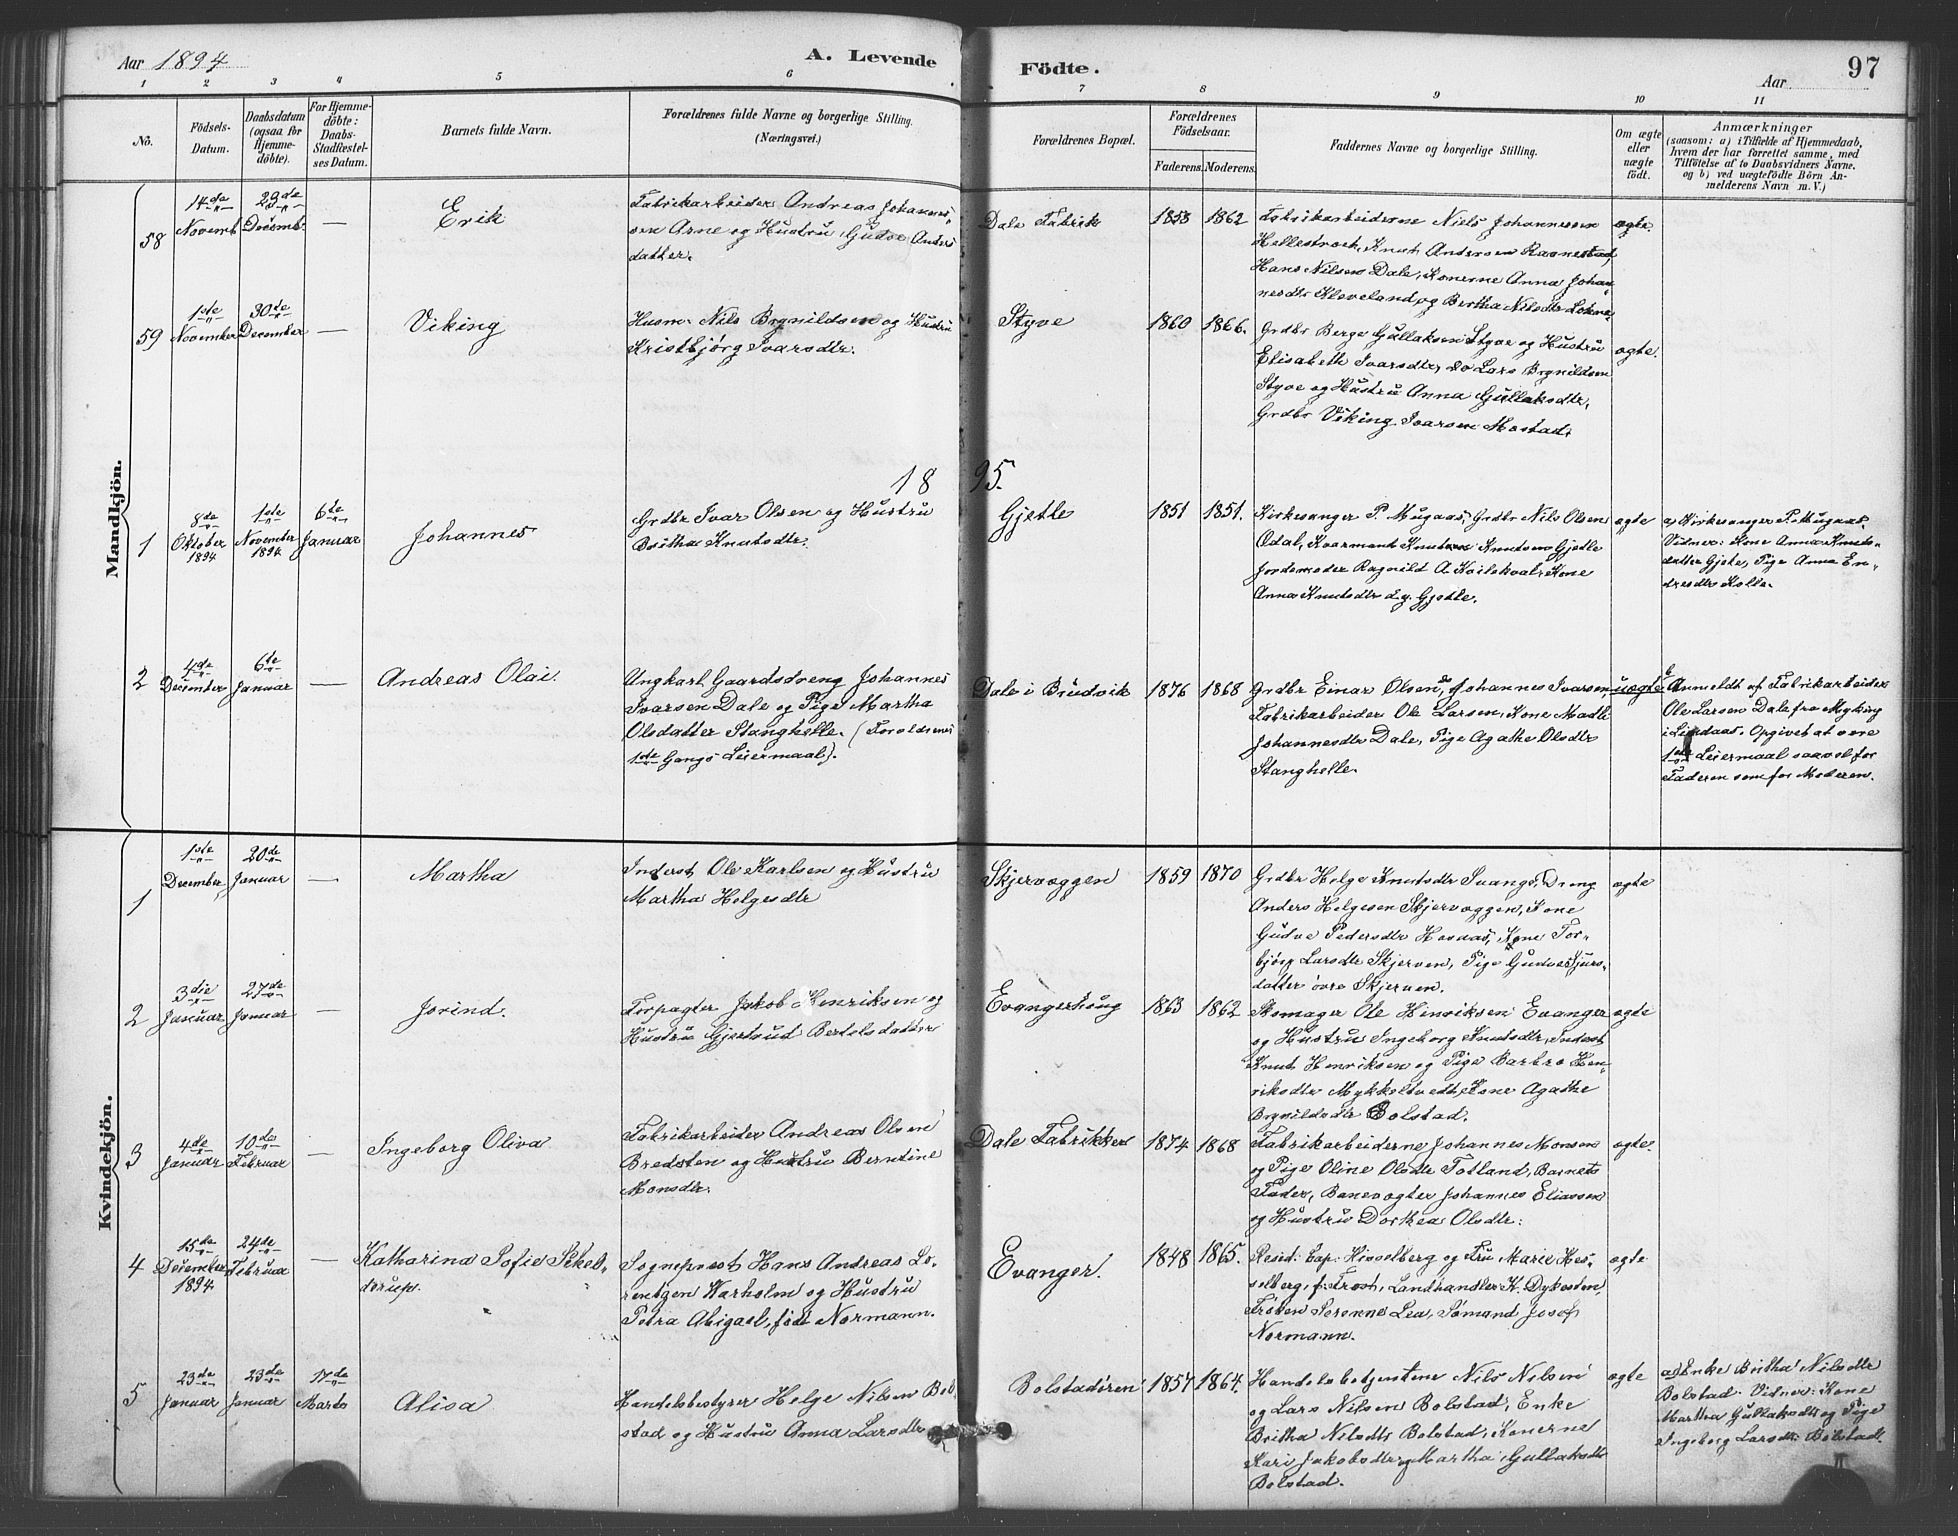 Aar 1894
A. Levende Födte.
Aar
97
1 2 3 4 5 6 7 8 9 10 11
No.
Födsels-Datum.
Daabsdatum (ogsaa for Hjemmedöbte).
For Hjemmedöbte: Daabs-Stadfæstelses Datum.
Barnets fulde Navn.
Forældrenes fulde Navne og borgerlige Stilling. (Næringsvei.)
Forældrenes Bopæl.
Forældrenes Födselsaar.
Faderens. Moderens.
Faddernes Navne og borgerlige Stilling.
Om ægte eller uægte födt.
Anmærkninger
(saasom: a) i Tilfælde af Hjemmedaab, hvem der har forrettet samme, med Tilföielse af to Daabsvidners Navne. og b) ved uægtefödte Börn Anmelderens Navn m. V.)
Mandkjön.
58
14de Novemb.
29de Decemb.
—
Erik
Fabrikarbeider Andreas Johannes-
sen Arne og Hustru Gudve Anders
datter.
Dale Fabrik
1858 1862
Fabrikarbeiderne Niels Johannesen
Hellestræt, Knut Andersen
Hans Nilsen Dale, Konerne Anna Johan-
nesdtr Kleveland og Bertha Nilsdtr
ægte.
59
1ste November
30de December
—
Viking
Husm. Nils Brynildsen og Hustru
Kristbjørg Ivarsdtr.
Styve
1860 1866.
Grdbr Berge Gullaksen Styve og Hustru
Elisabeth Ivarsdtr, do Lars Brynildsen
Styve og Hustru Anna Gullaksdtr,
Grdbr Viking Ivarsen Mostad.
ægte.
1895.
1
8de Oktober 1894
1ste November 1894
6te Januar
Johannes
Grdbr Ivar Olsen og Hustru
Britha Knutsdtr.
Gjetle
1851 1851.
Kirkesanger P. Mugaas, Grdbr Nils Olsen
Ødal, Kaarmand Knut Knutsen Gjetle
Jordemoder Ragnild A Koilekval, Kone
Anna Knutsdtr d.y. Gjetle.
ægte
a) Kirkesanger P. Mugaas.
Vidner: Kone Anna Knuts-
datter Gjete, Pige Anna En-
dresdtr Kolle.
2
4de December
6te Januar
—
Andreas Olai
Ungkarl Gaardsdreng Johannes
Ivarsen Dale og Pige Martha
Olsdatter Stanghelle. (Forældrenes
1ste Gangs Leiermaal).
Dale i Brudvik
1876 1868
Grdbr Einar Olsen, do Johannes Ivarsen,
Fabrikarbeider Ole Larsen, Kone Madli
Johannesdtr Dale, Pige Agathe Olsdtr
Stanghelle.
uægte
b Anmeldt af Fabrikarbeider
Ole Larsen Dale fra Myking
i Lindaas. Opgivet at være
1ste Leiermaal saavel for
Faderen som for Moderen.
Kvindekjön.
1
1ste December
20de Januar
—
Martha
Inderst Ole Karlsen og Hustru
Martha Helgesdtr
Skjervæggen
1859 1870
Grdbr Helge Knutsdtr Svangs, Dreng
Anders Helgesen Skjervæggen, Kone
Gudve Pedersdtr Hosnas, Kone Tor-
bjørg Larsdtr Skjerven, Pige Gudve Sjurs-
datter øvre Skjerven.
ægte
2
3die Januar
27de Januar
—
Jorind.
Forpagter Jakob Henriksen og
Hustru Gjertrud Bertelsdatter
Evangerhoug
1863 1862
Skomager Ole Henriksen Evanger
og Hustru Ingeborg Knutsdtr, Inderst
Knut Henriksen og Pige Barbro Hen-
riksdtr Mykkeltvedt, Kone Agathe
Brynildsdtr Bolstad.
ægte
3
4de Januar
10de Februar
—
Ingeborg Oliva
Fabrikarbeider Andreas Olsen
Bredsten og Hustru Berntine
Monsdtr.
Dale Fabrikker
1874 1868
Fabrikarbeiderne Johannes Monsen
og Pige Oline Olsdtr Totland, Barnets
Fader, Banevogter Johannes Eliassen
og Hustru Dorthea Olsdtr.
ægte.
4
15de December 1894
24de Februar
—
Katharina Sofie
derup.
Sogneprest Hans Andreas Lo-
rentzen Karholm og Hustru
Petra Abigael, född Normann.
Evanger.
1848 1865.
Resid: Cap. Hesselberg og Fru Marie Hes-
selberg, f: Frost, Landhandler K. Dykesten,
Frøken Serenne Lea, Sømand Josef
Normann.
ægte
5
23de Januar
23de Januar
17de Marts
Alisa
Handelsbestyrer Helge Nilsen Bol-
stad og Hustru Anna Larsdtr
Bolstadøren
1857 1864.
Handelsbetjentene Nils Nilsen
og Lars Nilsen Bolstad, Enke
Britha Nilsdtr Bolstad, Konerne
Kari Jakobsdtr og Martha Gullaksdtr
Bolstad.
ægte
a) Enke Britha Nilsdtr
Bolstad. Vidner: Kone
Martha Gullaksdtr og Pige
Ingeborg Larsdtr Bolstad.